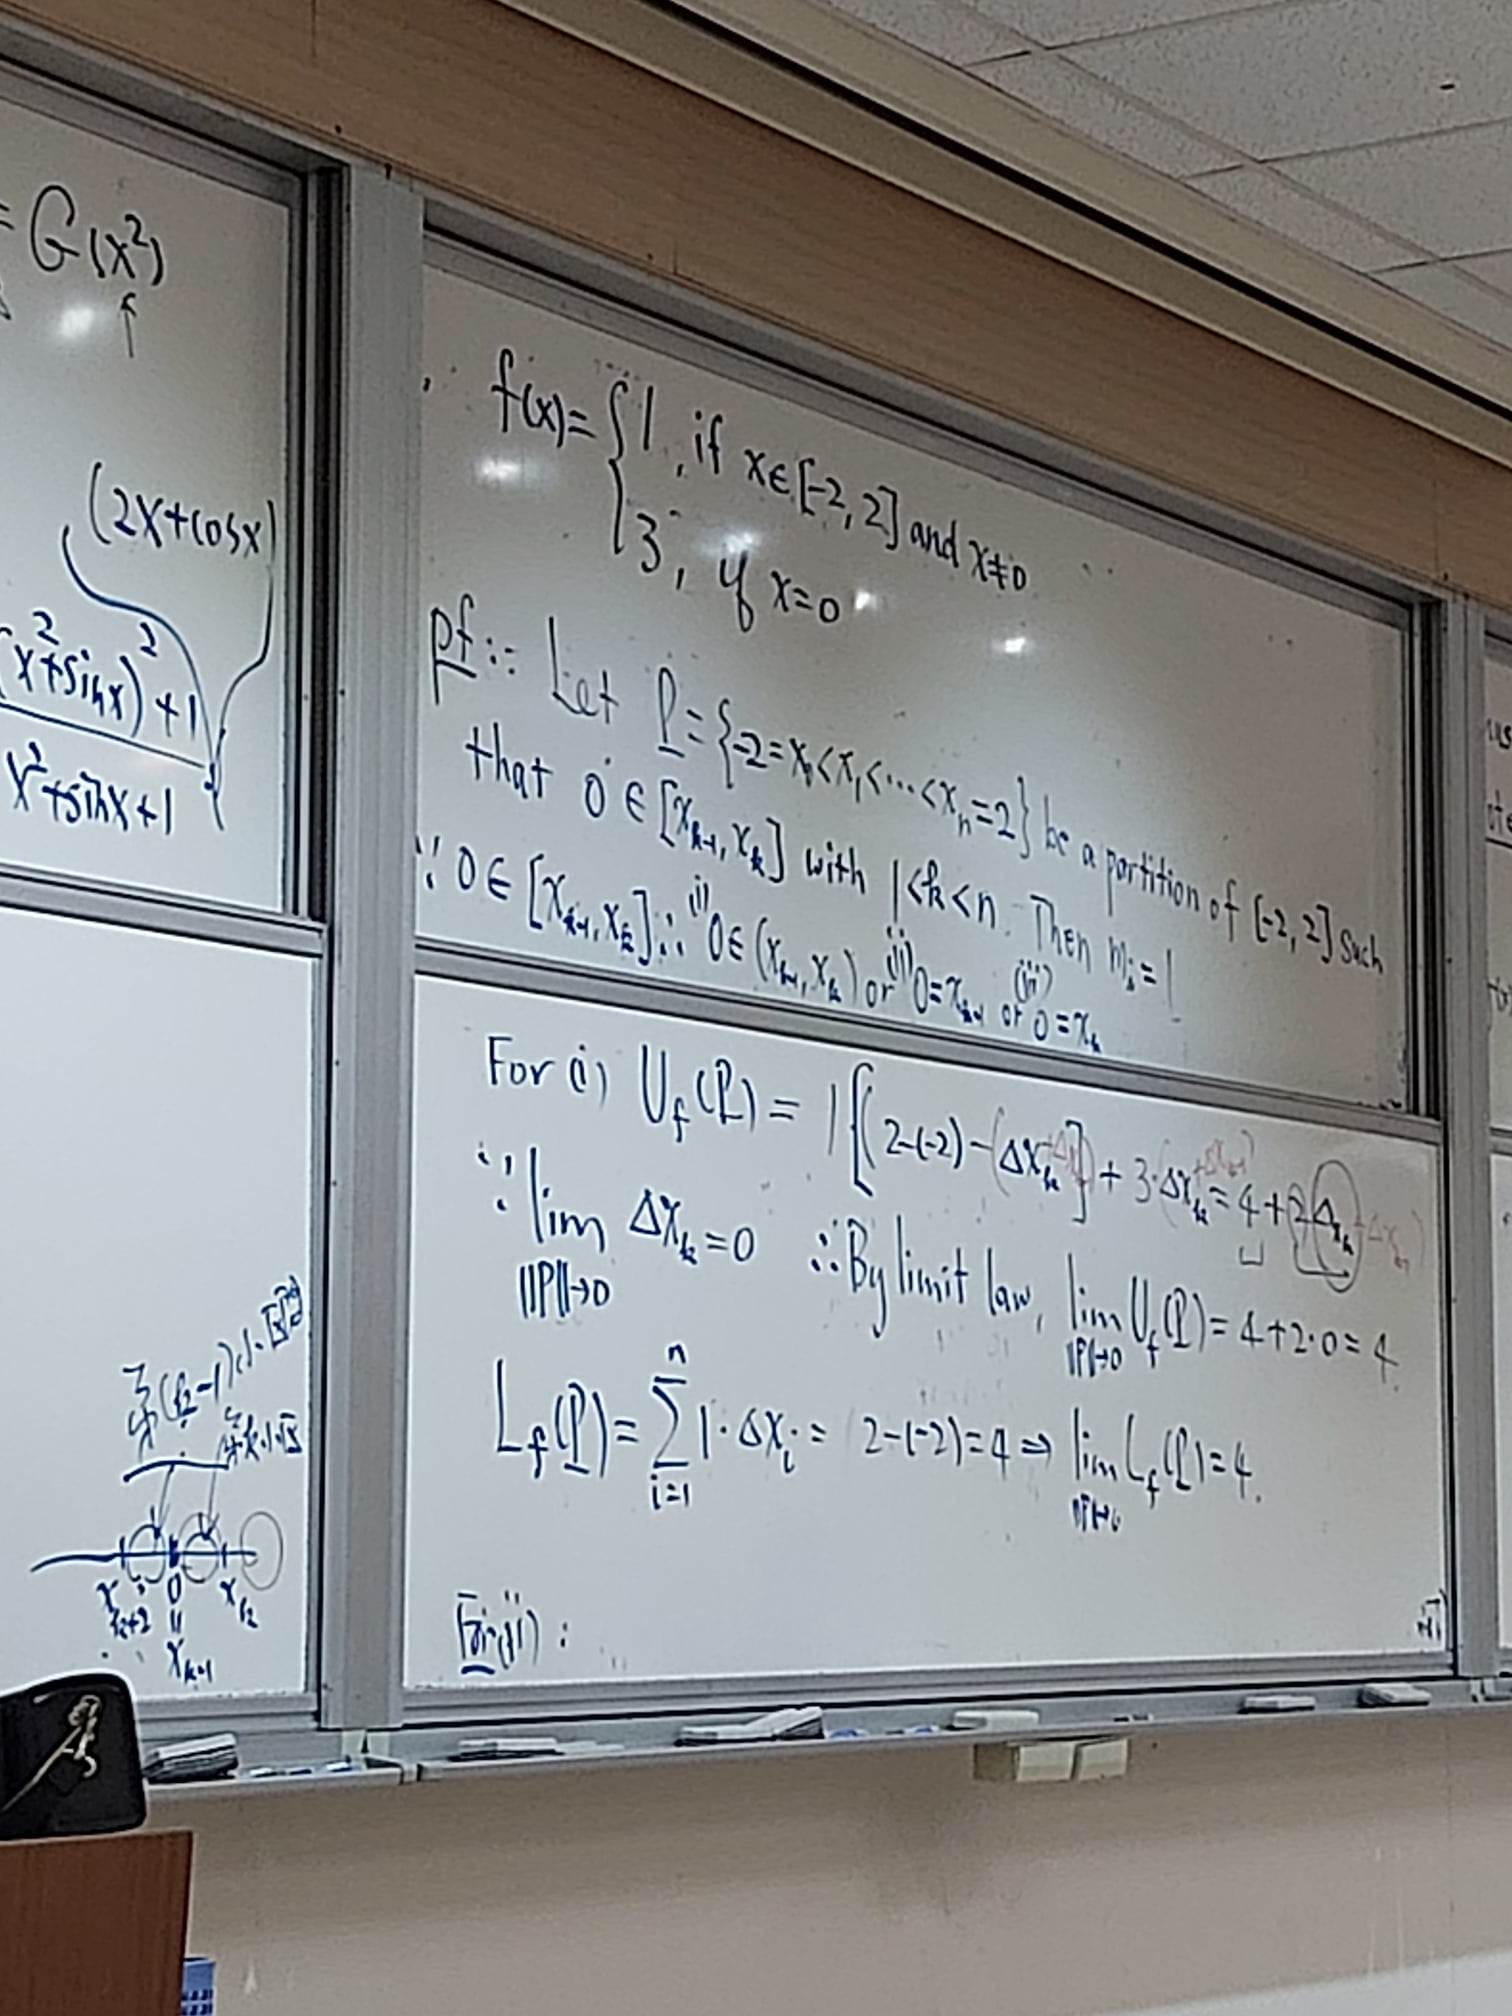 = G(x²)
↑
(2x+cosx)
(x²+sinx)² + 1
x²+sinx+1
f(x)= { 1, if x∈[-2,2] and x≠0
3, if x=0
pf:: Let P={-2=x₀<x₁<⋯<xₙ=2} be a partition of [-2,2] such
that 0∈[xₖ₋₁,xₖ] with 1<k<n. Then mᵢ=1
∵ 0∈[xₖ₋₁,xₖ] ∴ (i) 0∈(xₖ₋₁,xₖ) or (ii) 0=xₖ₋₁ or (iii) 0=xₖ
For (i) U_f(P) = 1[2-(-2)-(Δxₖ] + 3·Δxₖ = 4+2Δxₖ
∵ lim Δxₖ=0 ∴ By limit law, lim U_f(P)=4+2·0=4.
||P||→0 ||P||→0
L_f(P)= ∑ⁿᵢ₌₁ 1·Δxᵢ = 2-(-2)=4 ⇒ lim L_f(P)=4.
||P||→0
For(ii):
0 xₖ
xₖ₋₁